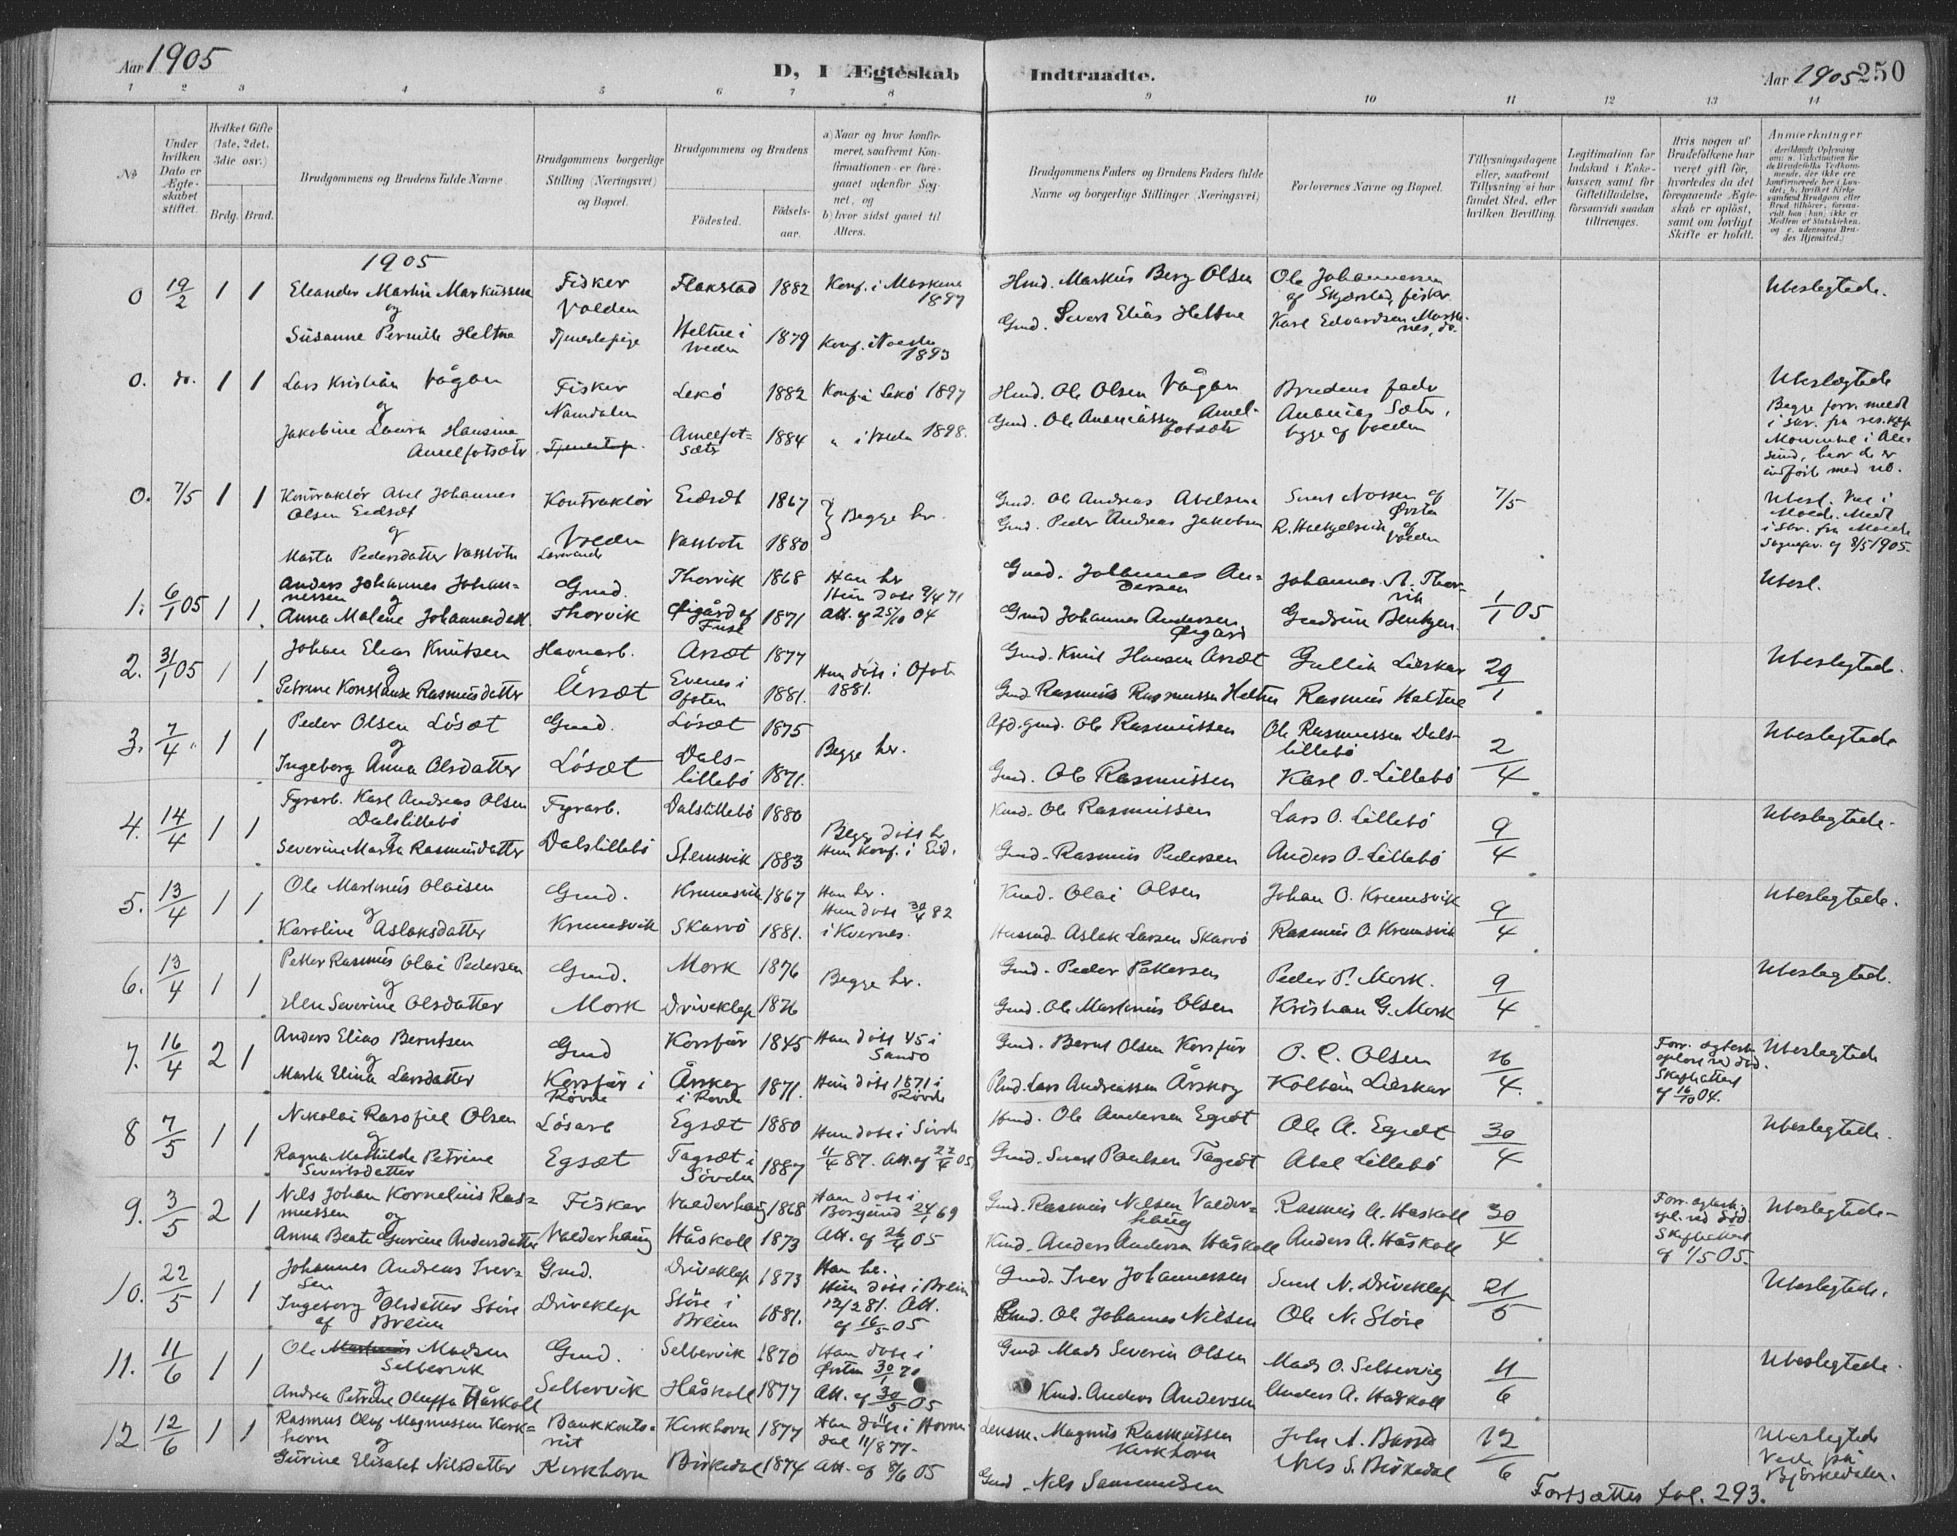 Aar 1905
D, I Ægteskab
Indtraadte.
Aar 1905 250
1 2 3 4 5 6 7 8 9 10 11 12 13 14
№
Under hvilken Dato er Ægteskabet stiftet.
Hvilket Gifte (1ste, 2det, 3die osv.)
Brdg. Brud.
Brudgommens og Brudens fulde Navne.
Brudgommens borgerlige Stilling (Næringsvei) og Bopæl.
Brudgommens og Brudens
Fødested.
Fødsels-aar.
a) Naar og hvor konfirmeret, saafremt Konfirmationen er foregaaet udenfor Sognet, og
b) hvor sidst gaaet til Alters.
Brudgommens Faders og Brudens Faders fulde Navne og borgerlige Stillinger (Næringsvei)
Forlovernes Navne og Bopæl.
Tillysningsdagene eller, saafremt Tillysning ei har fundet Sted, efter hvilken Bevilling.
Legitimation for Indskud i Enkekassen samt for Giftetilladelse, forsaavidt saadan tiltrænges.
Hvis nogen af Brudefolkene har været gift før, hvorledes da det foregaaende Ægteskab er opløst, samt om lovligt Skifte er holdt.
Anmærkninger
1905
0 19/2 1 1 Eleander Martin Markussen
og
Susanne Pernille Heltne
Fisker
Volden
Tjenestepige
Flakstad 1882 Konf. i
1897
Heltne i
1879 Konf. i
1893
Hmd. Markus Berg Olsen
Gmd. Sivert Elias Heltne
Ole Johannessen
af Skjærstad, fisker
Karl Edvardsen
Ubeslegtede.
0. do. 1 1 Lars Kristian Vågan
og
Jakobine Laura Hansine
Amelfotsæter
Fisker
Namdalen
Lekø 1882 Konf. i Lekø 1897
Amelfot-
sæter 1884 " i Volda 1898.
Hmd. Ole Olsen Vågan
Gmd. Ole Ananiassen Amel-
fotsæter
Brudens fader
Ananias Sæter,
begge af Volden
Ubeslægtede
Begge forr. meldt
0. 7/5 1 1 Kontraktør Abel Johannes
Olsen Eidsæt
og
Marta Pedersdatter Vassbotn
Kontraktør
Volden
Eidsæt 1867
Vassbotn 1880
Begge her.
Gmd. Ole Andreas Abelsen
Gmd. Peder Andreas Jakobsen
Sivert Nossen af
Ørsta
af
Volden
7/5
i skr. fra Molde
Sognepr. af 8/5 1905.
1. 6/1 05 1 1 Anders Johannes Johan-
nessen og
Anna Malene Johannesdatt.
Gmd.
Thorvik
Thorvik 1868 Han her
Hun døbt 9/4 71
Øigård af
Fuse 1871 Att. af 25/10 04
Gmd. Johannes An-
dersen
Gmd Johannes Andersen
Øigård
Johannes A. Thor-
vik
1/1 05
Ubesl.
2. 31/1 05 1 1 Johan Elias Knutsen
og
Petrine Konstanse Rasmusdatter
Havnarb.
Årsæt
Årsæt 1877
Evenes i
Ofoten 1881.
Hun døbt i Ofoten
1881.
Gmd. Knut Hansen Årsæt
Gmd Rasmus Rasmussen Heltne
Rasmus Heltne
29/1
Ubeslegtede.
3. 7/4 1 1 Peder Olsen Løsæt
og
Ingeborg Anna Olsdatter
Gmd.
Løsæt
Løsæt 1875
Dals-
lillebø 1871.
Begge her.
Afd. gmd. Ole Rasmussen
Gmd. Ole Rasmussen
Ole Rasmussen Dals-
lillebø
Karl O. Lillebø
2/4
Ubeslegtede
4. 14/4 1 1 Fyrarb. Karl Andreas Olsen
Dalslillebø
og
Severine Marta Rasmusdatter
Fyrarb.
Dalslillebø
Dalslillebø 1880
Stemsvik 1883
Begge døbt her
Hun konf. i Eid.
Kmd. Ole Rasmussen
Gmd. Rasmus Pedersen
Lars O. Lillebø
Anders O. Lillebø
9/4
Ubeslegtede.
5. 13/4 1 1 Ole Martinus Olaisen
og
Karoline Aslaksdatter
Gmd.
Krumsvik
Krumsvik 1867 Han her.
Skarvø 1881. Hun døbt 30/4 82
i Kvernes.
Kmd. Olai Olsen
Husmd. Aslak Larsen Skarvø
Johan O. Krumsvik
Rasmus O. Krumsvik
9/4
Ubeslegtede.
6. 13/4 1 1 Petter Rasmus Olai Pedersen
og
Elen Severine Olsdatter
Gmd.
Mork
Mork 1876
Driveklep 1876
Begge her.
Gmd. Peder Pettersen
Gmd. Ole Martinus Olsen
Peder P. Mork.
Kristian G. Mork
9/4
Ubeslegtede.
7. 16/4 2 1 Anders Elias Berntsen
og
Marta Elina Larsdatter
Gmd
Korsfur i
Røvde
Korsfur 1845 Han døbt 45 i
Sandø
Årskog
i Rovde 1871. Hun døbt 1871 i
Røvde
Gmd. Bernt Olsen Korsfur
Pmd. Lars Andreassen Årskog
O. C. Olsen
16/4.
Forr. ægtesk.
opløst ved død.
Skifteattest
af 16/10 04.
Ubeslegtede
8 7/5 1 1 Nikolai Olsen
og
Ragna Mathilde Petrine
Sivertsdatter
Løsarb
Egsæt
Egsæt 1880
Tagsæt i
1887
11/4 87. Att. af 22/4 05
Hmd. Ole Andersen Egsæt
Gmd. Sivert Paulsen Tagsæt
Ole A. Egsæt
Abel Lillebø
30/4
Ubeslegtede.
9. 3/5 2 1 Nils Johan Kornelius Ras-
mussen og
Anna Beate Gurine Andersdatter
Fisker
Valderhaug
Valderhaug 1868 Han døbt i
Borgund 24/1 69
Håskoll 1873 Att. af 26/4 05
Gmd. Rasmus Nilsen Valder-
haug
Kmd. Anders Andersen Håskoll
Rasmus A. Haskoll
Anders A. Håskoll
30/4
Forr. ægtesk.
opl. ved død.
Skifteattest
af 1/5 05.
Ubeslegtede
10. 22/5 1 1 Johannes Andreas Iver-
sen og
Ingeborg Olsdatter Støre
af Breim
Gmd.
Driveklep
Driveklep 1873 Han her.
Hun døbt i Breim
Støre i
Breim 1881. 12/2 81. Att.
af 16/5 05
Gmd. Iver Johannessen
Gmd. Ole Johannes Nilsen
Sivert N. Driveklep
Ole N. Støre
21/5
Ubeslegtede.
11. 11/6 1 1 Ole Madsen
Selbervik
og
Andrea Petrine Oluffa Håskoll
Gmd.
Selbervik
Selbervik 1870 Han døbt i
Ørsten 30/1 70
Håskoll 1877 Att. af 30/5 05
Gmd Mads Severin Olsen
Kmd. Anders Andersen
Mads O. Selbervig
Anders A. Haskoll
11/6
Ubeslegtede.
12 12/6 1 1 Rasmus Olaf Magnussen Kirk-
horn og
Gurine Elisabet Nilsdatter
Kirkhorn
Kirkhorn 1877 Han døbt i Hornin-
dal 11/8 77.
Birkedal 1874 Att. af 8/6 05
Lensm. Magnus Rasmussen
Kirkhorn
Gmd. Nils Samuelsen
Nils S. Birkedal
12/6
Ubeslegtede
Viede på
Bjørkedalen.
Fortsættes fol. 293.